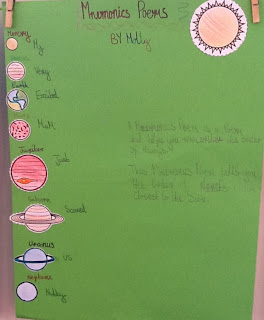 Mnemonics Poems
BY Molly
Mercury
My
Very
Earth
Excited
Mum
Jupiter
Just
Saturn
Scared
Uranus
US
Neptune
A Mnemonics Poem is a Poem
that helps you remember the order
of
This Mnemonics Poem tells you
the order of Planets
closest to the Sun.